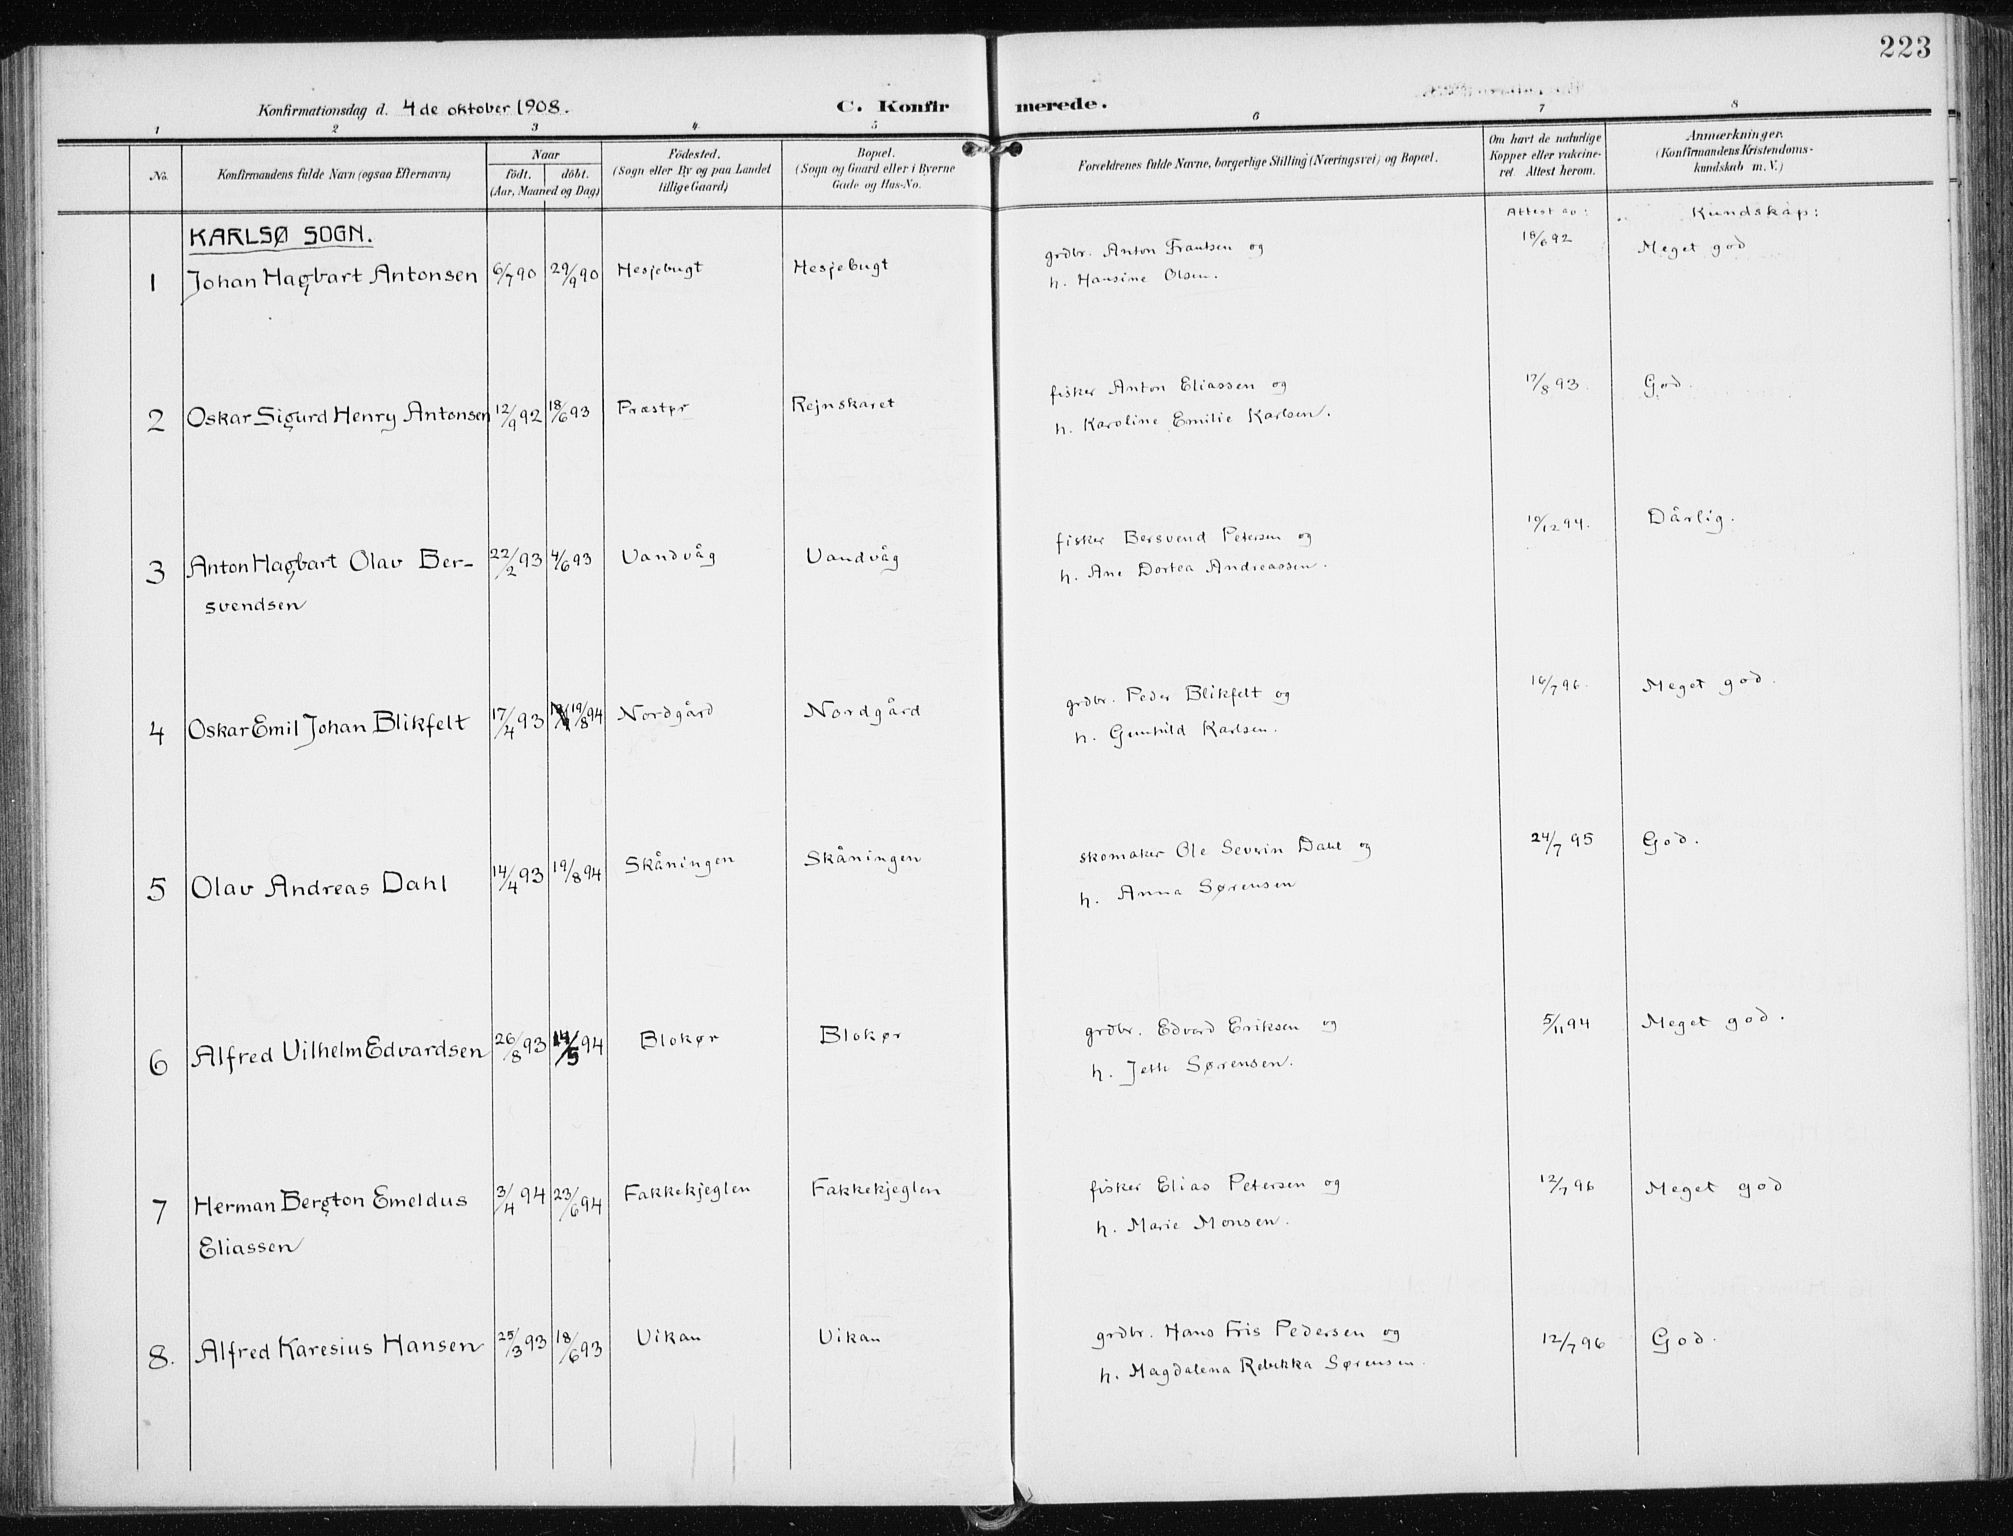 223
Konfirmationsdag d. 4 de oktober 1908.
C. Konfirmerede.
1 2 3 4 5 6 7 8
No.
Konfirmandens fulde Navn (ogsaa Efternavn)
Naar
födt. döbt.
(Aar, Maaned og Dag)
Födested.
(Sogn eller By og paa Landet
tillige Gaard)
Bopæl.
(Sogn og Gaard eller i Byerne
Gade og Hus-No.
Forældrenes fulde Navne, borgerlige Stilling (Næringsvei) og Bopæl.
Om havt de naturlige
Kopper eller vakcine-
ret. Attest herom.
Anmærkninger.
(Konfirmandens Kristendoms-
kundskab m. V.)
Attest av: Kundskap:
KARLSØ SOGN.
1 Johan Hagbart Antonsen 6/7 90 29/9 90 Hesjebugt Hesjebugt grdbr. Anton Frantsen og 18/6 92 Meget god
h. Hansine Olsen.
2 Oskar Sigurd Henry Antonsen 12/9 92 18/6 93 Præstør Rejnskaret fisker Anton Eliassen og 17/8 93. God.
h. Karoline Emilie Karlsen.
3 Anton Hagbart Olav Ber- 22/2 93 4/6 93 Vandvåg Vandvåg fisker Bersvend Petersen og 10/12 94. Dårlig.
svendsen h. Ane Dortea Andreassen.
4 Oskar Emil Johan Blikfelt 17/4 93 19/8 94 Nordgård Nordgård grdbr. Peder Blikfelt og 16/7 96. Meget god.
h. Gunhild Karlsen.
5 Olav Andreas Dahl 14/4 93 19/8 94 Skåningen Skåningen skomaker Ole Severin Dahl og 24/7 95 God.
h. Anna Sørensen
6 Alfred Vilhelm Edvardsen 26/8 93 14/5 94 Blokør Blokør grdbr. Edvard Eriksen og 5/11 94 Meget god.
h. Jette Sørensen.
7 Herman Bergton Emeldus 3/4 94 23/6 94 Fakkekjeglen Fakkekjeglen fisker Elias Petersen og 12/7 96 Meget god
Eliassen h. Marie Monsen.
8. Alfred Karesius Hansen 25/3 93 18/6 93 Vikan Vikan grdbr. Hans Fris Pedersen og 12/7 96 God.
h. Magdalena Rebekka Sørensen.